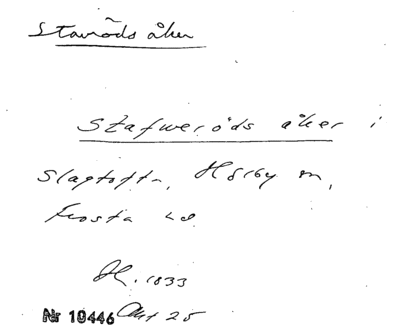 Stavröds åker
Stafweröds åker i
Slagtofta, Hörby sn,
Frosta hd
H. 1833
Nr 10446 Akt 25